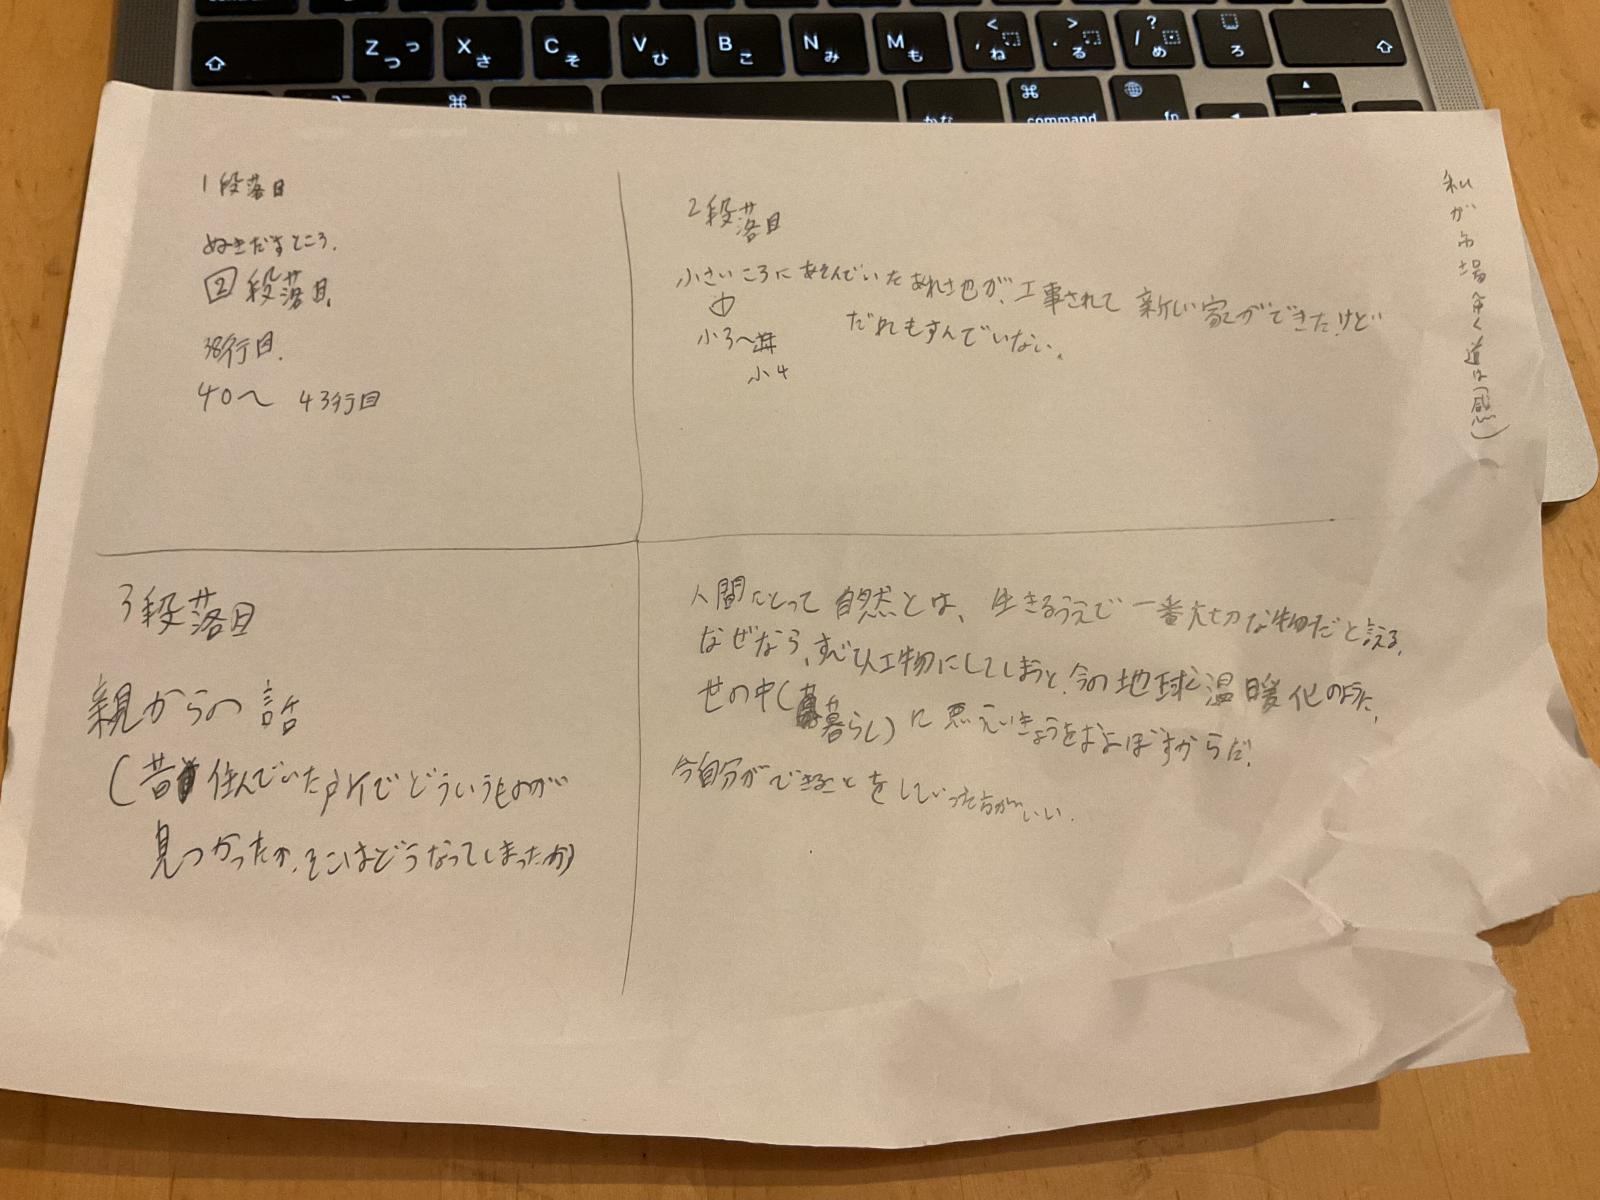 Z っ つ
X さ
C そ
V ひ
B こ
N み
M も
< , ね
> . る
? / め
ろ
⌘
かな
⌘ command
fn
1段落目
ぬきだすところ.
② 段落目.
38行目.
40〜 43行目
2段落目
小さいころにあそんでいたあれさ地が、工事されて 新しい家ができたけど
だれもすんでいない.
小3〜
小4
私が市場 く道は(感)
3段落目
親からの話
(昔 住んでいた所でどういうものが
見つかったか.そこはどうなってしまったか)
人間にとって 自然とは、生きるうえで 一番大切な物だと言える.
なぜなら、すべて人工物にしてしまうと、今の地球温暖化のように、
世の中(暮らし)に悪えいきょうをおよぼすからだ.
今自分ができることをしていった方がいい.